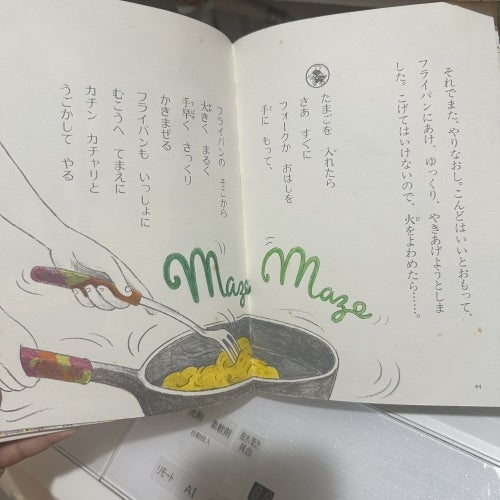 それでまた、やりなおし。こんどはいいとおもって、
フライパンにあけ、ゆっくり、やきあげようとしま
した。こげてはいけないので、火をよわめたら……。
たまごを 入れたら
さあ すぐに
フォークか おはしを
手に もって、
フライパンの そこから
大きく まるく
手早く さっくり
かきまぜる
フライパンも いっしょに
むこうへ てまえに
カチン カチャリと
うごかして やる
Maze Maze
11
洗剤
柔軟剤
自動投入
具合
リモート
AI